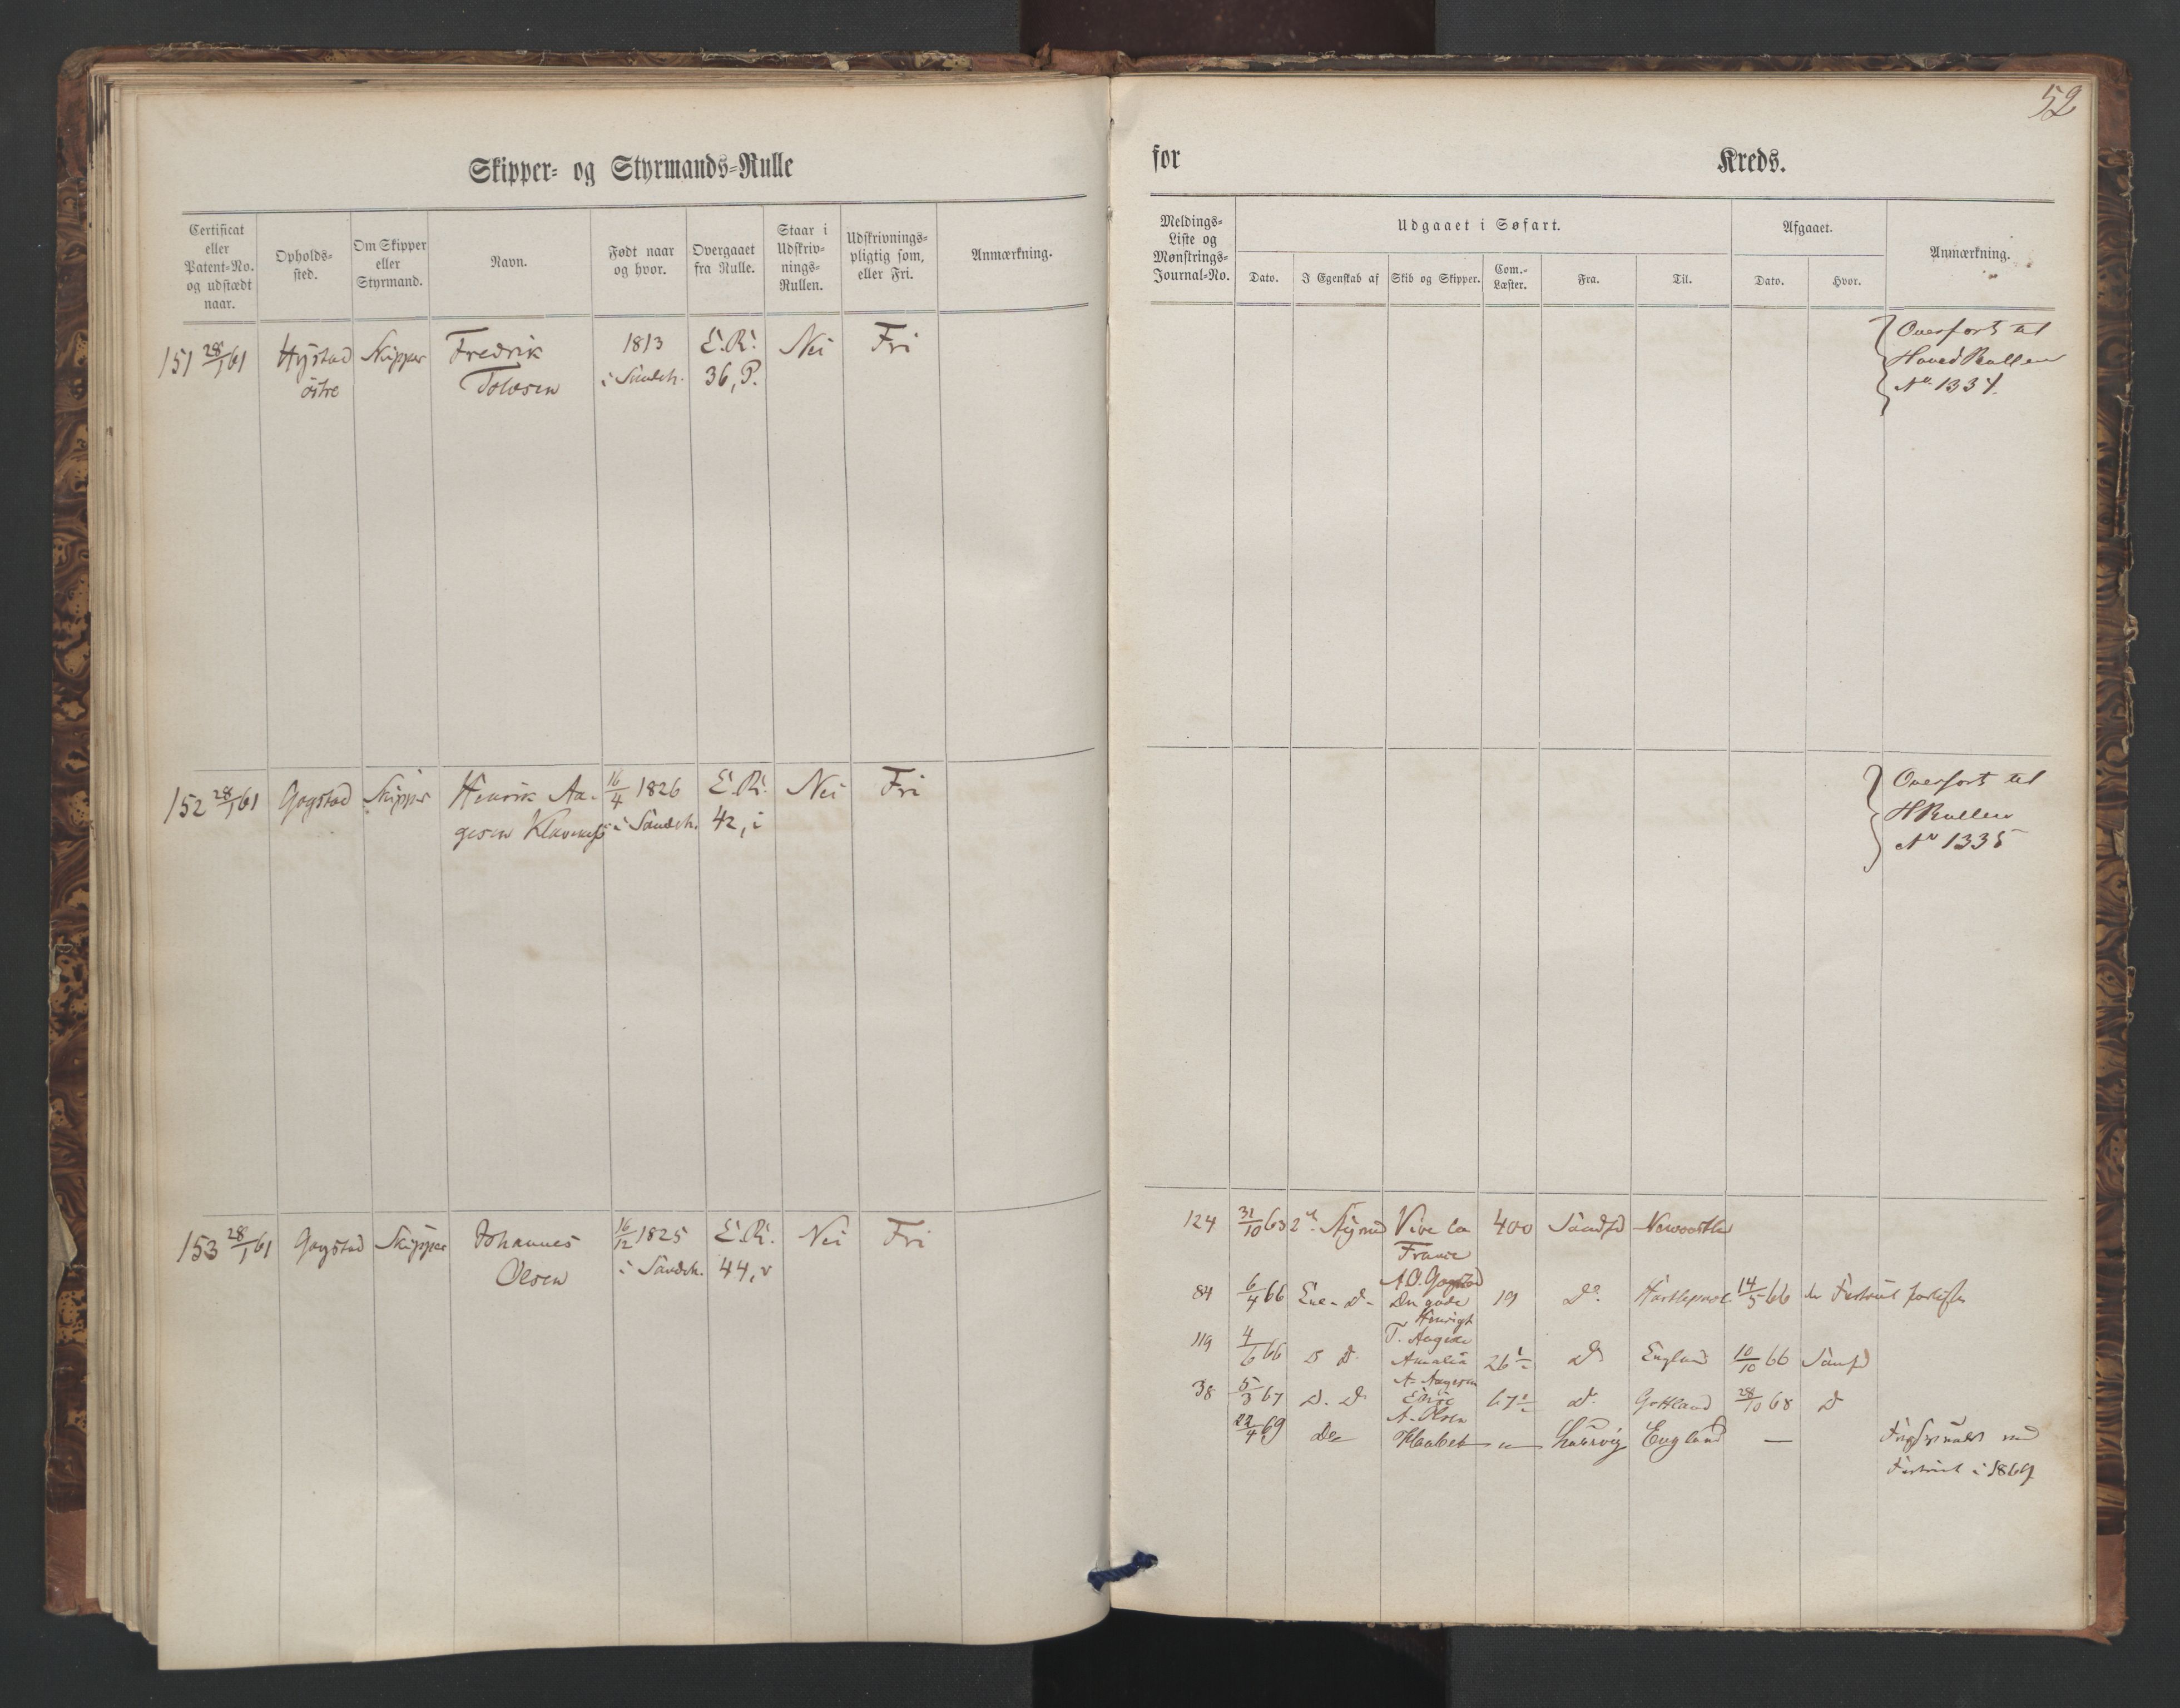 52
Skipper- og Styrmands-Rulle
for Kreds.
Certificat eller Patent-No. og udstædt naar.
Opholds-sted.
Om Skipper eller Styrmand.
Navn.
Født naar og hvor.
Overgaaet fra Rulle.
Staar i Udskriv-nings-Rullen.
Udskrivnings-pligtig som, eller Fri.
Anmærkning.
Meldings-Liste og Mønstrings-Journal-No.
Udgaaet i Søfart.
Dato.
I Egenskab af
Skib og Skipper.
Com.-Læster.
Fra.
Til.
Afgaaet.
Dato.
Hvor.
Anmærkning.
151 28/1 61 Hystad Skipper Fredrik 1813 E. R. Nei Fri
østre Tolvsen i Sandeh. 36, P.
Overført til
HovedRullen
No 1334.
152 28/1 61 Gogstad Skipper Henrik Aa- 16/4 1826 E. R. Nei Fri
gesen Klavenes i Sandeh. 42, i
Overført til
HRullen
No 1335
153 28/1 61 Gogstad Skipper Johannes 16/12 1825 E. R. Nei Fri
Olsen i Sandeh. 44, v
124 31/10 63 2d Styrmd Vive la 400 Sandfd Newcastle
France
A. O. Gogstad
84 6/4 66 Den gode 19 Do. Hartlepool 14/5 66
Hensigt
T. Aagesen
119 4/6 66 D D Amalia 26 1/2 Do England 10/10 66 Sandfd
A. Aagesen
38 5/3 67 D. D 67 1/2 d. Gottland 28/10 68 D
A. Olsen
22/4 69 Do Haabet " Laurvig England —
i 1869